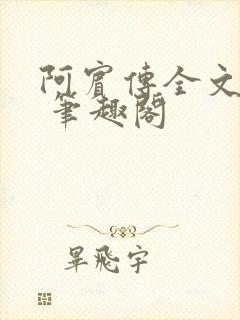 阿賓傳全文
筆趣閣
畢飛宇